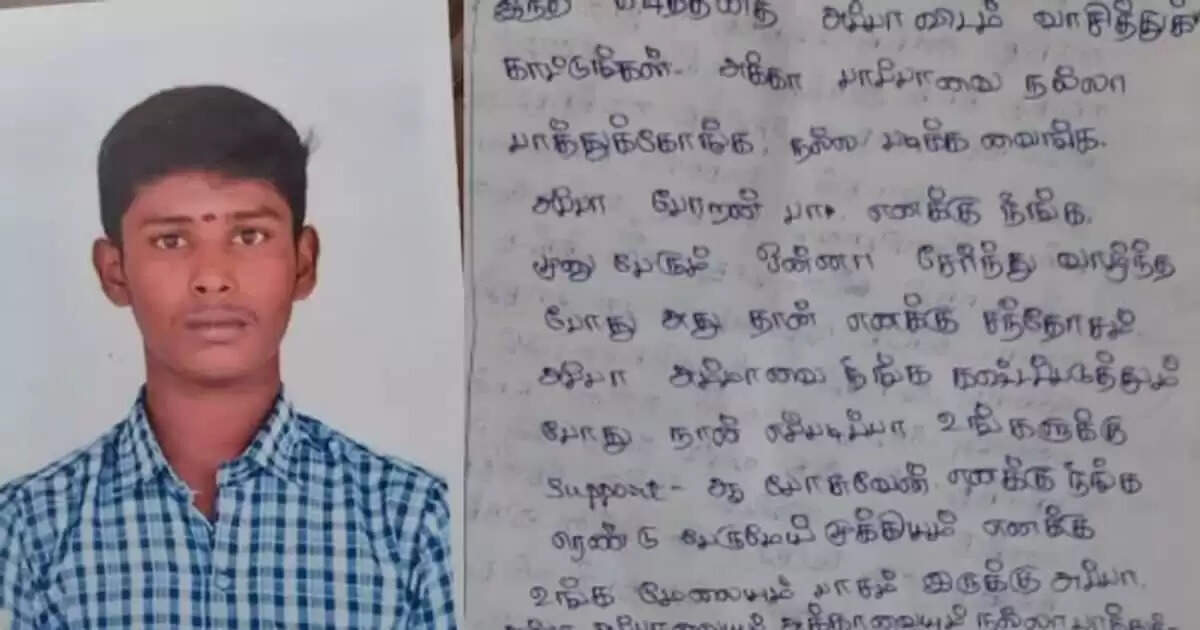 இந்த கடிதத்தை அம்மாவையும் வாசித்துக்
காட்டுங்கள். அக்கா பாப்பாவை நல்லா
பாத்துக்கோங்க. நல்ல படிக்க வைங்க.
அப்பா போறன் பா. எனக்கு நீங்க
மூணு பேரும் ஒன்னா சேர்ந்து வாழ்ந்த
போது அது தான் எனக்கு சந்தோசம்
அப்பா அம்மாவை நீங்க கஷ்டப்படுத்தும்
போது நான் எப்படிப்பா உங்களுக்கு
Support-ஆ பேசுவேன். எனக்கு நீங்க
ரெண்டு பேருமே முக்கியம் எனக்கு
உங்க மேலையும் பாசம் இருக்கு அப்பா.